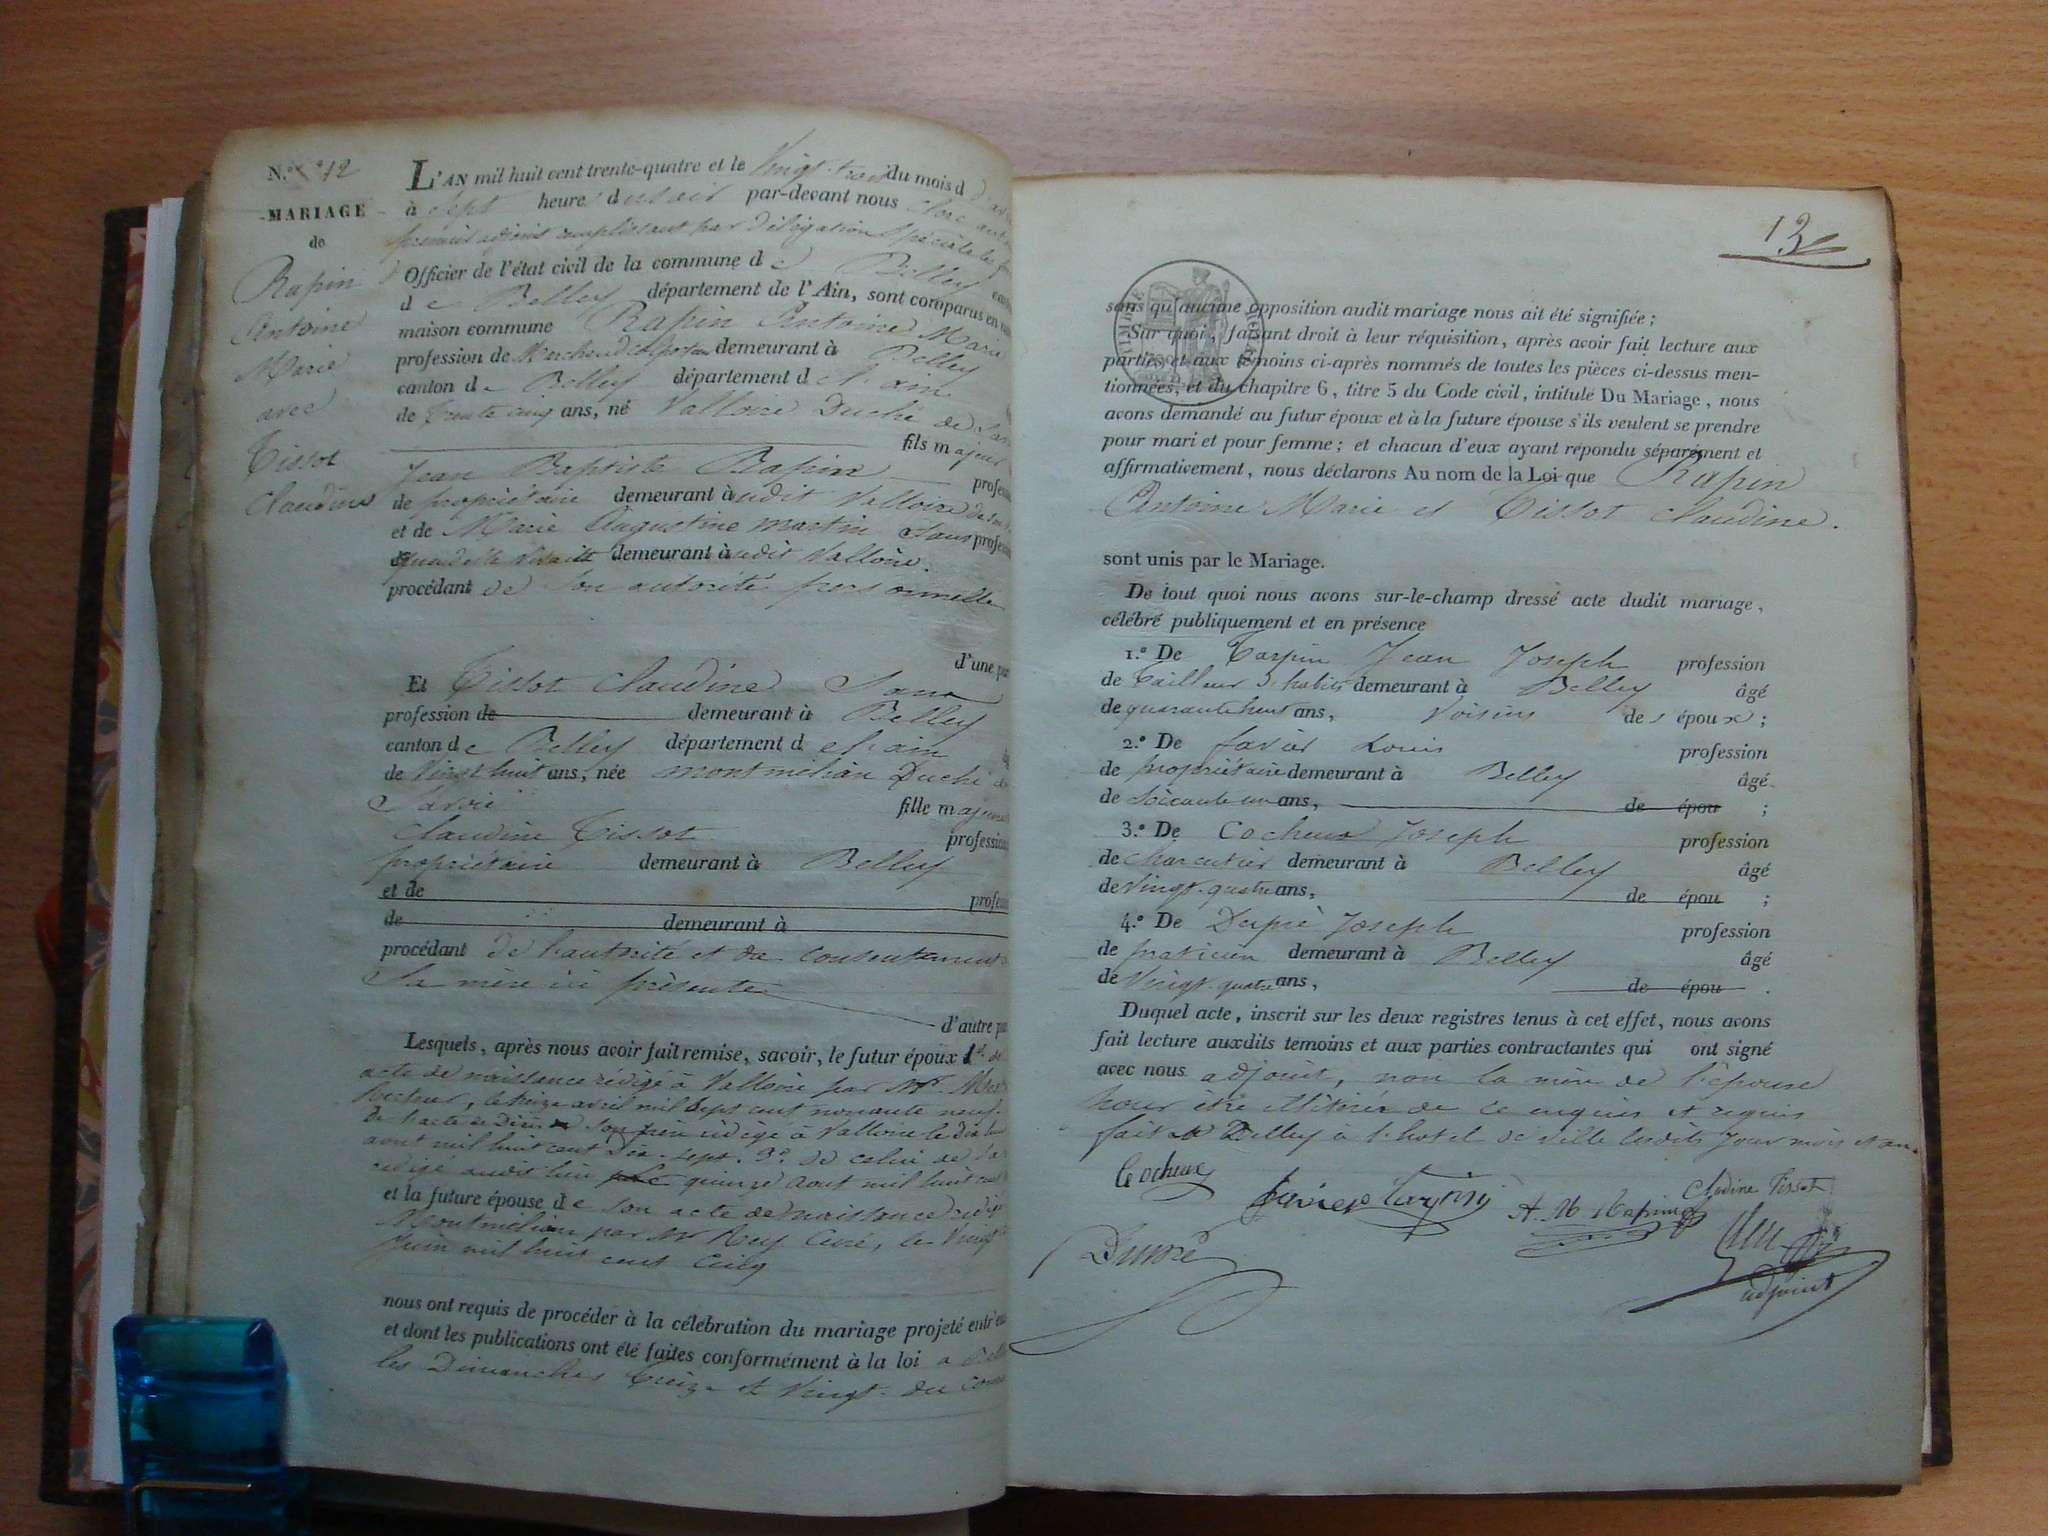 N.º 12
MARIAGE
de
Rapin
Antoine
Marie
avec
Tissot
Claudine
L'AN mil huit cent trente-quatre et le Vingt-trois du mois d
à sept heure du soir par-devant nous
premier adjoint remplissant par délégation spéciale les
Officier de l'état civil de la commune de Belley
de Belley département de l'Ain, sont comparus en
maison commune Rapin Antoine Marie
profession de Marchand colporteur demeurant à Belley
canton de Belley département de l'ain
de trente cinq ans, né Valloire Duché de
fils majeur
Jean Baptiste Rapin
de propriétaire demeurant audit Valloire
et de Marie Augustine Martin Sans
demeurant audit Valloire.
procédant de son autorité personnelle
d'une
Et Tissot Claudine Sans
profession de demeurant à Belley
canton de Belley département de l'ain
de Vingt huit ans, née montmélian Duché de
Savoie fille majeure
Claudine Tissot profession
propriétaire demeurant à Belley
et de
de demeurant à
procédant de l'autorité et du consentement
Sa mère ici présente
d'autre
Lesquels, après nous avoir fait remise, savoir, le futur époux 1º de
acte de naissance rédigé à Valloire par Mr
Recteur, le treize avril mil sept cent nonante neuf.
De l'acte de Décès de son père rédigé à Valloire le dix
aout mil huit cent dix-sept. 3º de celui de
rédigé audit lieu le quinze aout mil huit cent
et la future épouse de son acte de naissance rédigé
Montmélian par Mr Rey Curé, le Vingt
Juin mil huit cent Cinq
nous ont requis de procéder à la célébration du mariage projeté entr'eux
et dont les publications ont été faites conformément à la loi a
les Dimanches treize et Vingt du
13
TIMBRE ROYAL
sans qu'aucune opposition audit mariage nous ait été signifiée;
Sur quoi, faisant droit à leur réquisition, après avoir fait lecture aux
parties et aux témoins ci-après nommés de toutes les pièces ci-dessus men-
tionnées, et du chapitre 6, titre 5 du Code civil, intitulé Du Mariage, nous
avons demandé au futur époux et à la future épouse s'ils veulent se prendre
pour mari et pour femme; et chacun d'eux ayant répondu séparément et
affirmativement, nous déclarons Au nom de la Loi que Rapin
Antoine Marie et Tissot Claudine.
sont unis par le Mariage.
De tout quoi nous avons sur-le-champ dressé acte dudit mariage,
célébré publiquement et en présence
1.º De Tarpin Jean Joseph profession
de Tailleur d'habits demeurant à Belley âgé
de quarante huit ans, Voisins des époux;
2.º De favier Louis profession
de propriétaire demeurant à Belley âgé
de soixante un ans, de épou ;
3.º De Cocheux Joseph profession
de charcutier demeurant à Belley âgé
de Vingt-quatre ans, de épou ;
4.º De Dupré Joseph profession
de praticien demeurant à Belley âgé
de Vingt-quatre ans, de épou .
Duquel acte, inscrit sur les deux registres tenus à cet effet, nous avons
fait lecture auxdits temoins et aux parties contractantes qui ont signé
avec nous adjoint, non la mère de l'épouse
pour être illitérée de ce enquise et requise
fait à Belley à l'hotel de ville lesdits jour mois et an.
Cocheux
favier
Tarpin
A. M. Rapin
Clodine Tissot
Dupré
adjoint